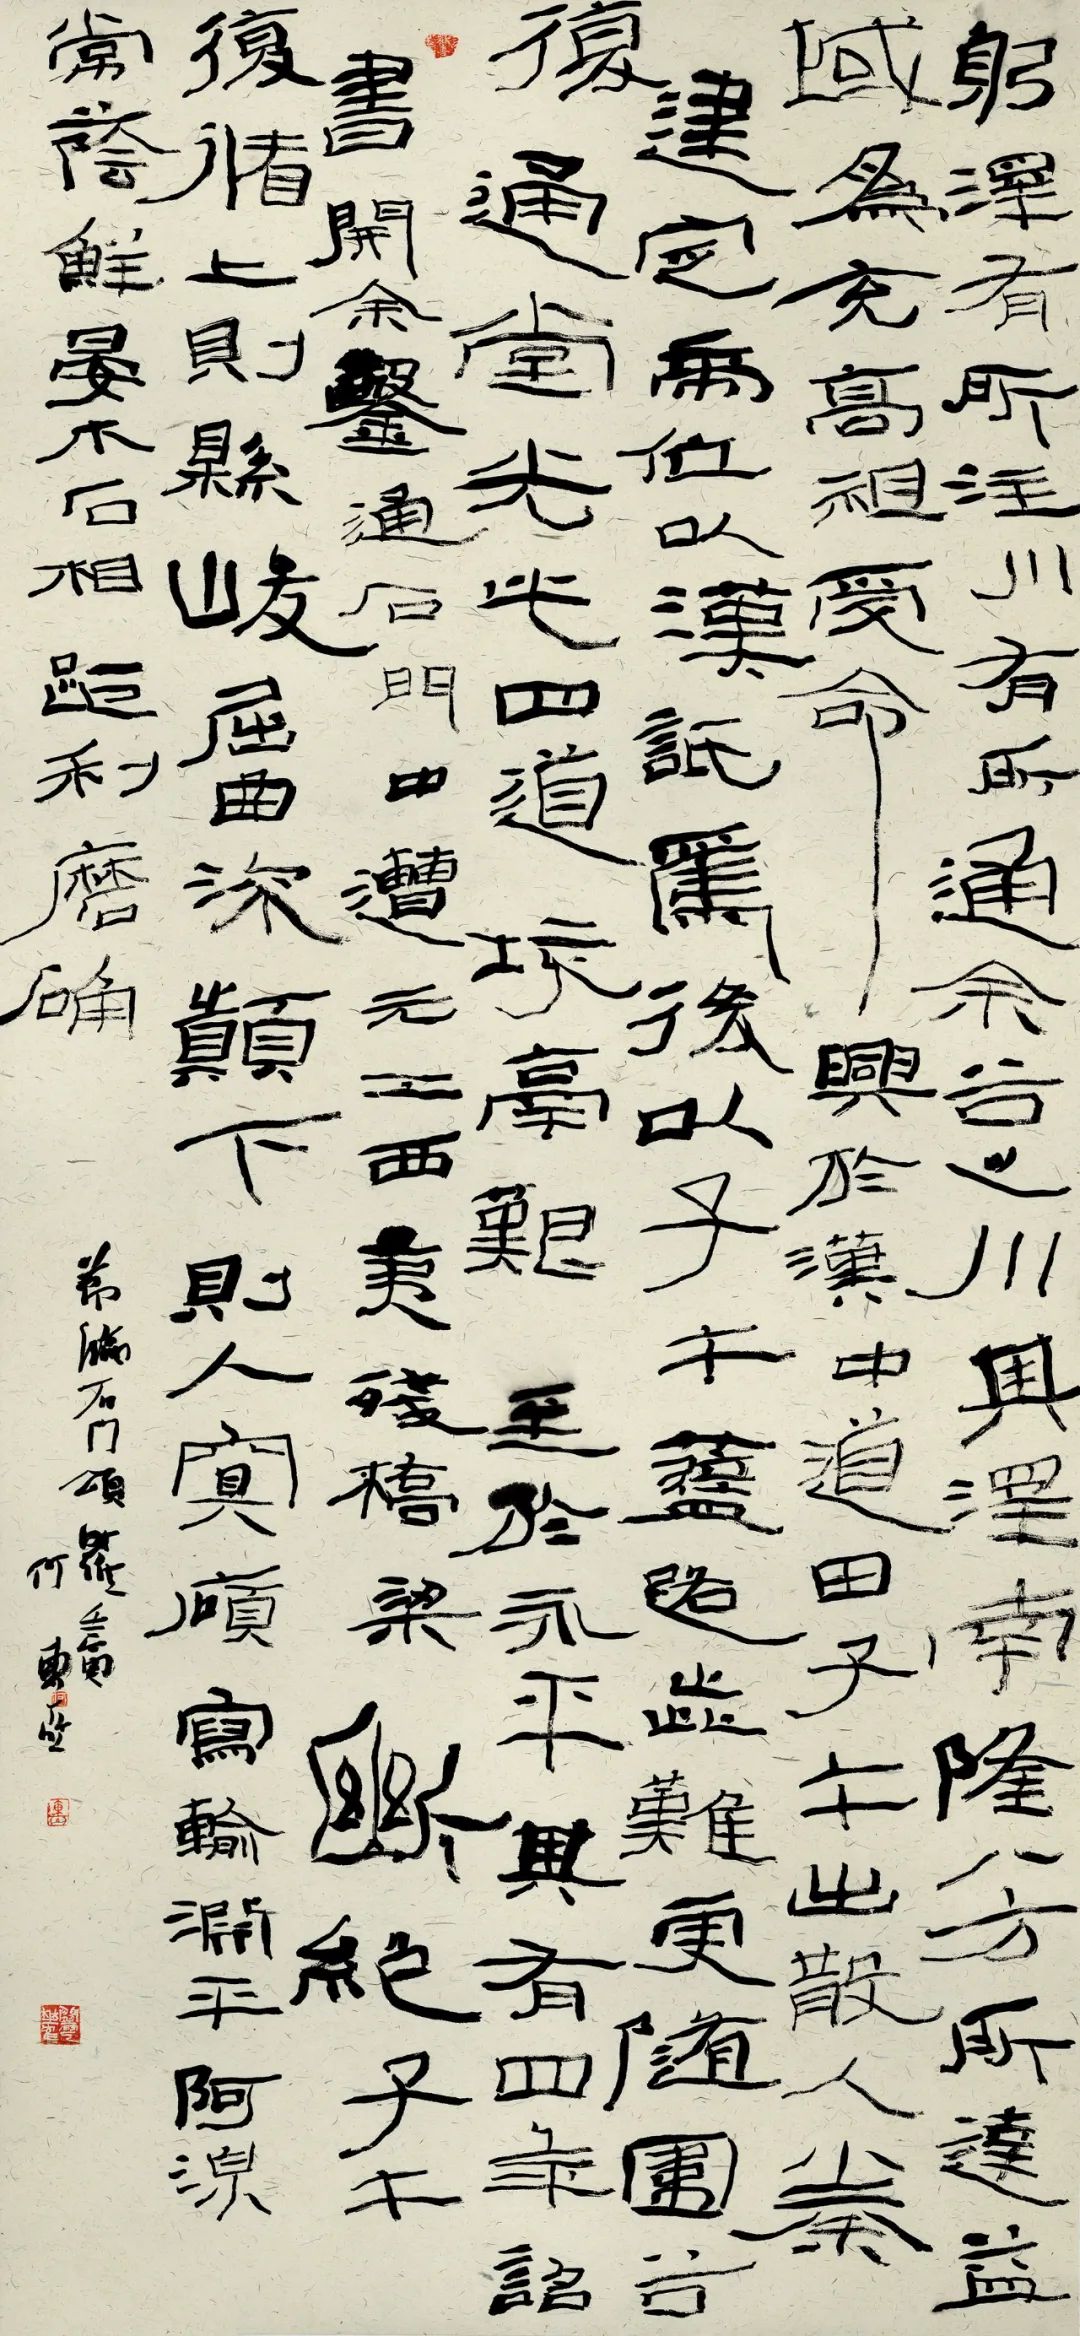 躬澤有所注川有所通余谷之川其澤南隆八方所達益
域為充高祖受命興於漢中道田子午出散入秦
建定帝位以漢詆焉後以子午塗路澀難更隨圍谷
復通堂光此四道垓鬲艱至於永平其有四年詔
書開余鑿通石門中遭元二西夷殘橋梁斷絕子午
復循上則縣峻屈曲流顛下則入寞庼寫輸淵平阿湶
常蔭鮮晏木石相距利磨确
節臨石門頌
何東